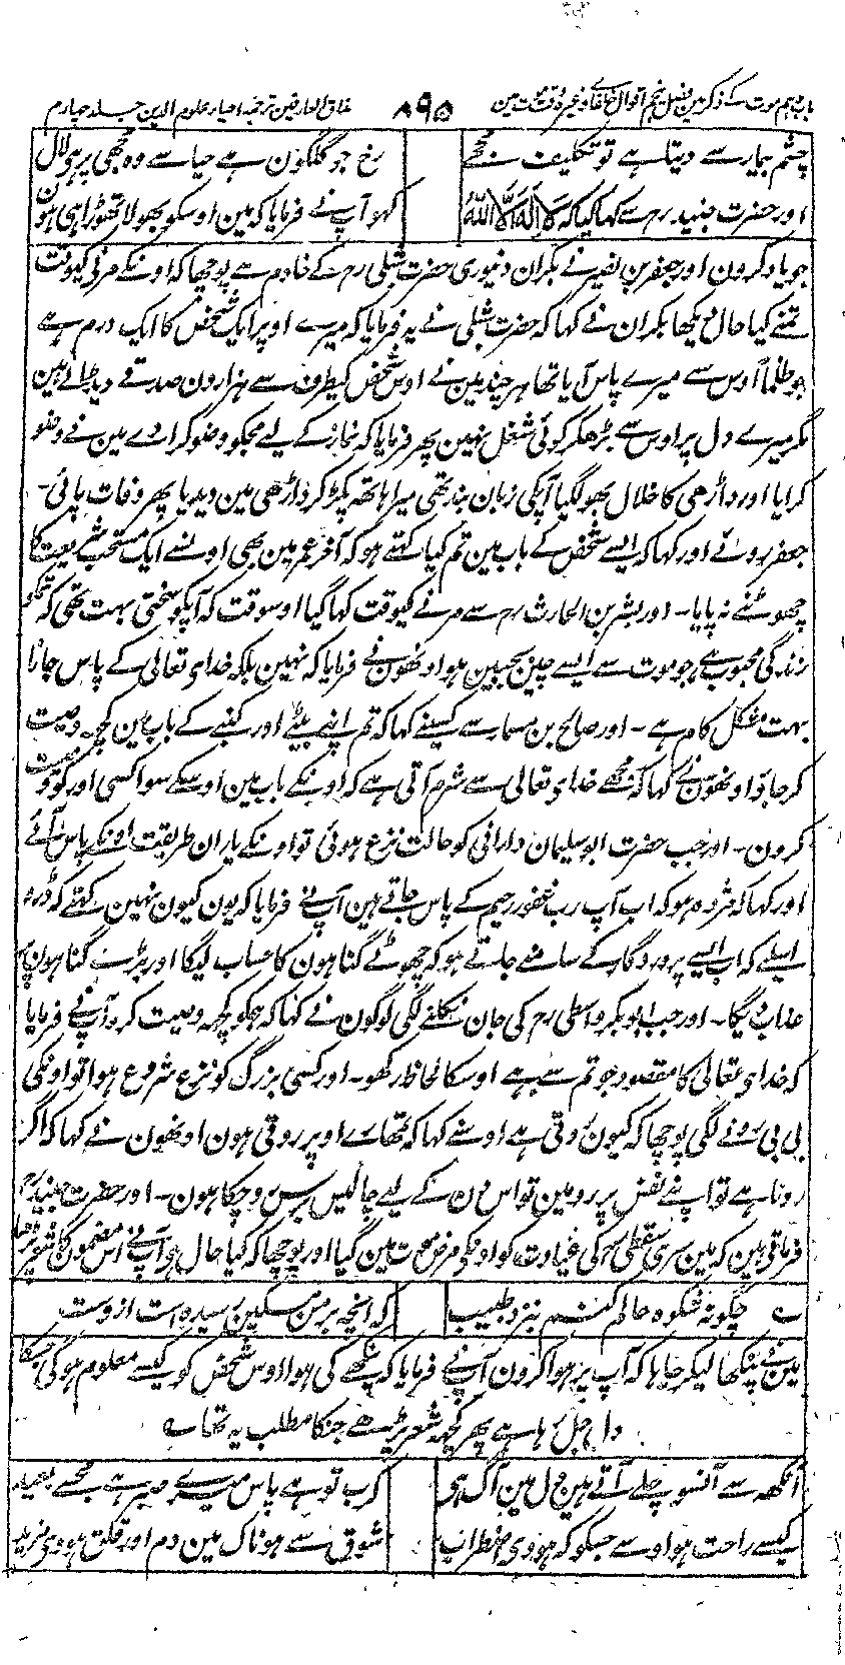 باب دہم موت کے ذکر مین فصل پنجم اقوال خلفا وغیرہ وقت موت مین ۸۹۵ مذاق العارفین ترجمہ احیاء علوم الدین جلد چہارم
چشم بیمار سے دیتا ہے تو تکلیف مجھے رخ جو گلگون ہے حیا سے وہ مجھی پر ہو لال
اور حضرت جنید رح سے کہا گیا کہ لا الہ الا اللہ کہو آپ نے فرمایا کہ مین اوسکو بھولا تھوڑا ہی ہون
جو یاد کرون اور جعفر بن نصیر نے بکران دنیوری حضرت شبلی رح کے خادم سے پوچھا کہ اونکے مرنیکیوقت
تمنے کیا حال دیکھا بکران نے کہا کہ حضرت شبلی نے یہ فرمایا کہ میرے اوپر ایک شخص کا ایک درم ہے
جو ظلماً اوس سے میرے پاس آیا تھا ہر چند مین نے اوس شخص کیطرف سے ہزارون صدقے دیڈالے ہین
مگر میرے دل پر اوس سے بڑھکر کوئی شغل نہین پھر فرمایا کہ نماز کے لیے مجکو وضو کرا دے مین نے وضو
کرایا اور داڑھی کا خلال بھولگیا آپکی زبان بند تھی میرا ہاتھ پکڑ کر داڑھی مین دیدیا پھر وفات پائی۔
جعفر روئے اور کہا کہ ایسے شخص کے باب مین تم کیا کہتے ہو کہ آخر عمر مین بھی اونسے ایک مستحب شریعت کا
چھوٹنے نہ پایا۔ اور بشر بن الحارث رح سے مرنے کیوقت کہا گیا اوسوقت کہ آپکو سختی بہت تھی کہ تمکو
زندگی محبوب ہے جو موت سے ایسے چین بجبین ہو اونھون نے فرمایا کہ نہین بلکہ خدای تعالی کے پاس جانا
بہت مشکل کام ہے۔ اور صالح بن مسمار سے کسینے کہا کہ تم اپنے بیٹے اور کنبے کے باب مین کچھ وصیت
کر جاؤ اونھون نے کہا کہ مجھے خدای تعالی سے شرم آتی ہے کہ اونکے باب مین اوسکے سوا کسی اور کو وصیت
کرون۔ اور جب حضرت ابو سلیمان دارانی کو حالت نزع ہوئی تو اونکے یاران طریقت اونکے پاس آئے
اور کہا کہ مژدہ ہو کہ اب آپ رب غفور رحیم کے پاس جاتے ہین آپ نے فرمایا کہ یون کیون نہین کہتے کہ ڈرو
اسلیے کہ اب ایسے پروردگار کے سامنے جاتے ہو کہ چھوٹے گناہون کا حساب لیگا اور بڑے گناہون پر
عذاب دیگا۔ اور جب ابو بکر واسطی رح کی جان نکلنے لگی لوگون نے کہا کہ ہمکو کچھ وصیت کرو آپ نے فرمایا
کہ خدای تعالی کا مقصود جو تم سے ہے اوسکا لحاظ رکھو۔ اور کسی بزرگ کو نزع شروع ہوا تو اونکی
بی بی رونے لگی پوچھا کہ کیون روتی ہے اوسنے کہا کہ تمھارے اوپر روتی ہون اونھون نے کہا کہ اگر
رونا ہے تو اپنے نفس پر رو مین تو اس دن کے لیے چالیس برس رو چکا ہون۔ اور حضرت جنید رح
فرماتے ہین کہ مین سری سقطی رح کی عیادت کو اونکی مرض موت مین گیا اور پوچھا کہ کیا حال ہے آپ نے اس مضمون کا شعر پڑھا
ے چگونہ شکوہ حالم کنم بنزد طبیب کہ انچہ بر من مسکین رسیدہ است ازوست
مین نے پنکھا لیکر چاہا کہ آپ پر ہوا کرون آپ نے فرمایا کہ پنکھے کی ہوا اوس شخص کو کیسے معلوم ہوگی جسکا
دل جل رہا ہے پھر کچھ شعر پڑھے جنکا مطلب یہ تھا ے
آنکھ سے آنسو چلے آتے ہین دل مین آگ ہی کرب تو ہے پاس میرے صبر ہے مجھسے بعید
کیسے راحت ہو اوسے جسکو کہ ہووی اضطراب شوق سے ہو ناک مین دم اور قلق ہووی مزید